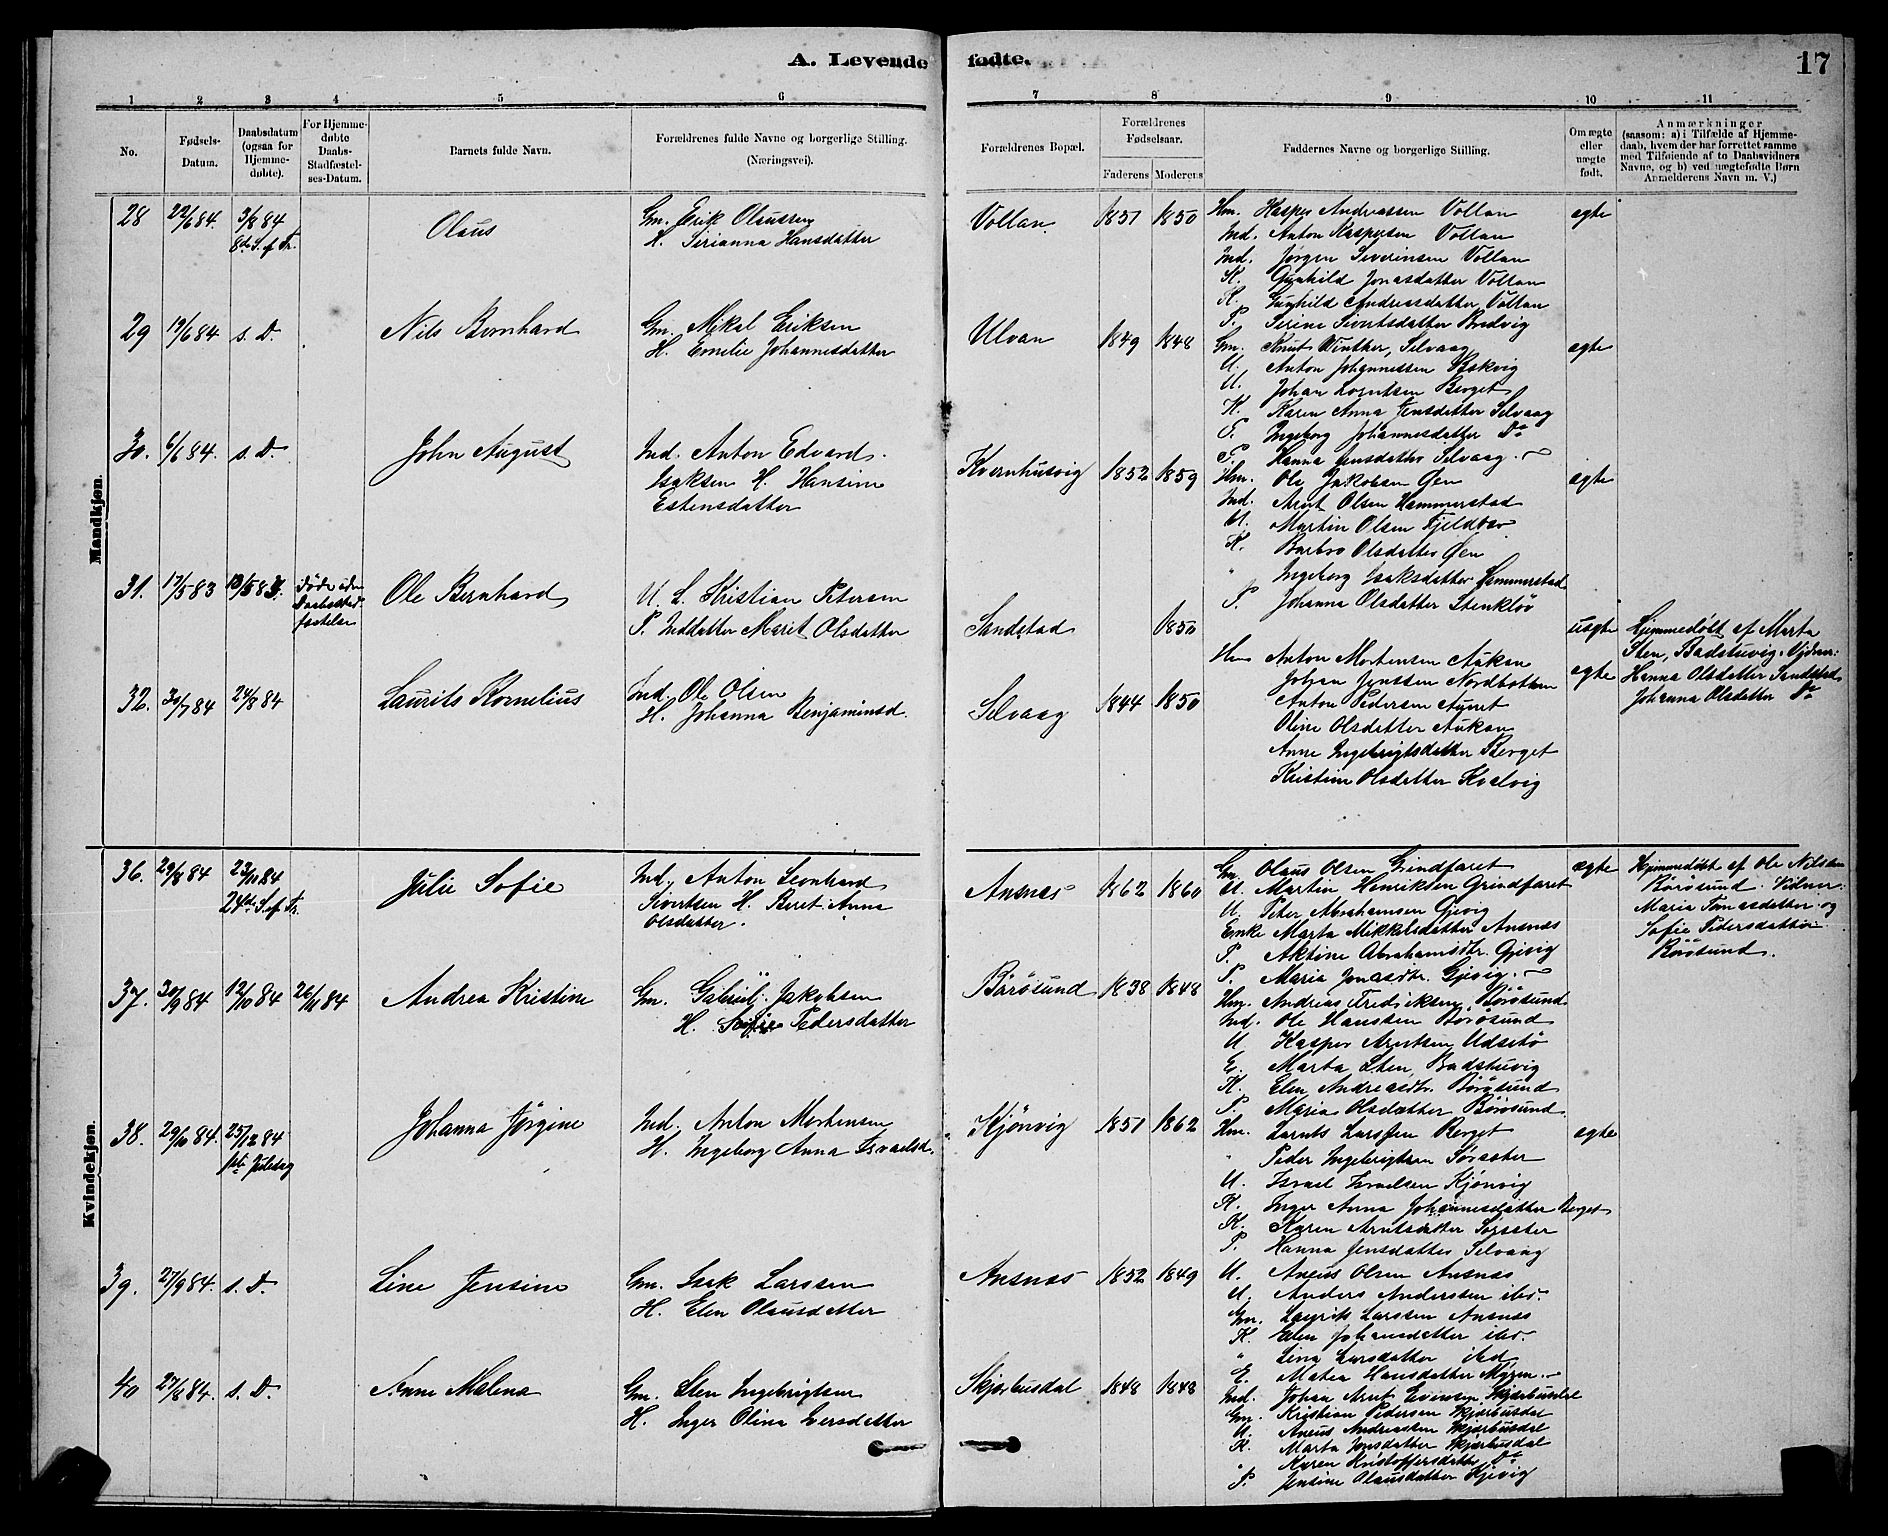 A. Levende fødte.
17
1 2 3 4 5 6 7 8 9 10 11
No.
Fødsels-
Datum.
Daabsdatum
(ogsaa for
Hjemme-
døbte).
For Hjemme-
døbte
Daabs-
Stadfæstel-
ses-Datum.
Barnets fulde Navn.
Forældrenes fulde Navne og borgerlige Stilling.
(Næringsvei).
Forældrenes Bopæl.
Forældrenes
Fødselsaar.
Faderens Moderens
Faddernes Navne og borgerlige Stilling.
Om ægte
eller
uægte
født.
Anmærkninger
(saasom: a) i Tilfælde af Hjemme-
daab, hvem der har forrettet samme
med Tilføiende af to Daabsvidners
Navne, og b) ved uægtefødte Børn
Anmelderens Navn m. V.)
Mandkjøn.
28 22/6 84. 3/8 84
8de S. f. Tr.
Olaus
Gm. Erik Olaussen
H. Sirianna Hansdatter
Vollan 1851 1850
Hm. Kasper Andreassen Vollan
Ind. Anton Kaspersen Vollan
Ind. Jørgen Severinsen Vollan
K. Gunhild Jonasdatter Vollan
K. Gunhild Andreasdatter Vollan
P. Serine Sivertsdatter Bredvig
ægte
29 19/6 84 s. D.
Nils Bernhard
Gm. Mikal Eriksen
H. Emelie Johannesdatter
Ulvan 1849 1848
Gm. Knut Winther, Selvaag
U. Anton Johannessen Bakvig
U. Johan Lorntsen Berget
K. Karen Anna Jensdatter Selvaag
P. Ingeborg Johannesdatter Do
P. Hanna Jensdatter Selvaag.
ægte
30. 6/6 84. s. D.
John August
Ind. Anton Edvard
Isaksen H. Hansine
Estensdatter
Kvernhusvig 1852 1859
Hm. Ole Jakobsen Øen
Ind. Arnt Olsen Hammerstad
U. Martin Olsen Fjeldvær
K. Barbro Olsdatter Øen
" Ingeborg Isaksdatter Hammerstad
P. Johanna Olsdatter Stenkløv
ægte
31. 17/5 83 18/5 83.
Døde uden
Daabsstad-
fæstelse
Ole Bernhard
U. L. Kristian Petersen
P. Inddatter Marit Olsdatter
Sandstad 1850
uægte
Hjemmedøbt af Marta
Sten, Badstuvig. Vidner:
Hanna Olsdatter Sandstad
Johanna Olsdatter Do
32. 30/7 84 24/8 84
Laurits Kornelius
Ind. Ole Olsen
H. Johanna Benjaminsd.
Selvaag 1844 1850
Hm Anton Mortensen Aukan
Johan Jenssen Nordbotten
Anton Pedersen Aunet
Oline Olsdatter Aukan
Anne Ingebrigtsdatter Berget
Kristine Olsdatter Kvelvig
ægte
Kvindekjøn.
36. 29/8 84 23/11 84
24de S. f. Tr.
Julie Sofie
Ind. Anton Leonhard
Sivertsen H. Beret Anna
Olsdatter.
Ansnæs 1862 1860
Gm. Olaus Olsen Grindfaret
U. Martin Henriksen Grindfaret
U. Peter Abrahamsen Gjevig
Enke Marta Mikkelsdatter Ansnæs
P. Aktine Abrahamsdtr. Gjevig
P. Maria Jonasdtr. Gjevig.
ægte
Hjemmedøbt af Ole Nilsen
Börösund. Vidner
Maria Tomasdatter og
Sofie Pedersdatter
Börösund.
37. 30/9 84 12/10 84 26/12 84
Andrea Kristine
Gm. Gabriel Jakobsen
H. Sofie Pedersdatter
Börösund 1838 1848
Hm. Andreas Fredriksen Börösund
Ind. Ole Hanssen Börösund
U Kasper Arntsen Udsetö
E. Marta Sten, Badstuvig
K. Elen Andreasdtr. Börösund
P. Maria Olsdatter Börösund
38. 29/10 84. 25/12 84
1ste Juledag
Johanna Jørgine
Ind. Anton Mortensen
H. Ingeborg Anna Israelsd.
Kjönvig 1851 1862
Hm. Larnts Larssen Berget
" Peder Ingebrigtsen Sørsæter
U. Israel Israelsen Kjönvig
K. Inger Anna Johannesdatter Berget
K. Karen Arntsdatter Sørsæter
P. Hanna Jensdatter Selvaag
ægte
39. 27/9 84. s. D.
Line Jensine
Gm. Isak Larssen
H. Elen Olausdatter
Ansnæs 1852 1849
U. Aneus Olsen Ansnæs
U. Anders Anderssen ibd.
Gm. Laurits Larssen Ansnæs
K. Elen Johansdatter ibd.
" Lina Larsdatter ibd
E. Matea Hansdatter Myren.
40 27/8 84. s. D.
Anne Malena
Gm. Sten Ingebrigtsen
H. Inger Olina Iversdatter
Skjærbusdal 1848 1848
Ind. Johan Arnt Evensen Skjærbusdal
Gm. Kristian Pedersen Skjærbusdal
U. Aneus Andreassen Skjærbusdal
K. Marta Jonsdatter Skjærbusdal
" Karen Kristoffersdatter Do
P. Jensine Olausdatter Gjevig